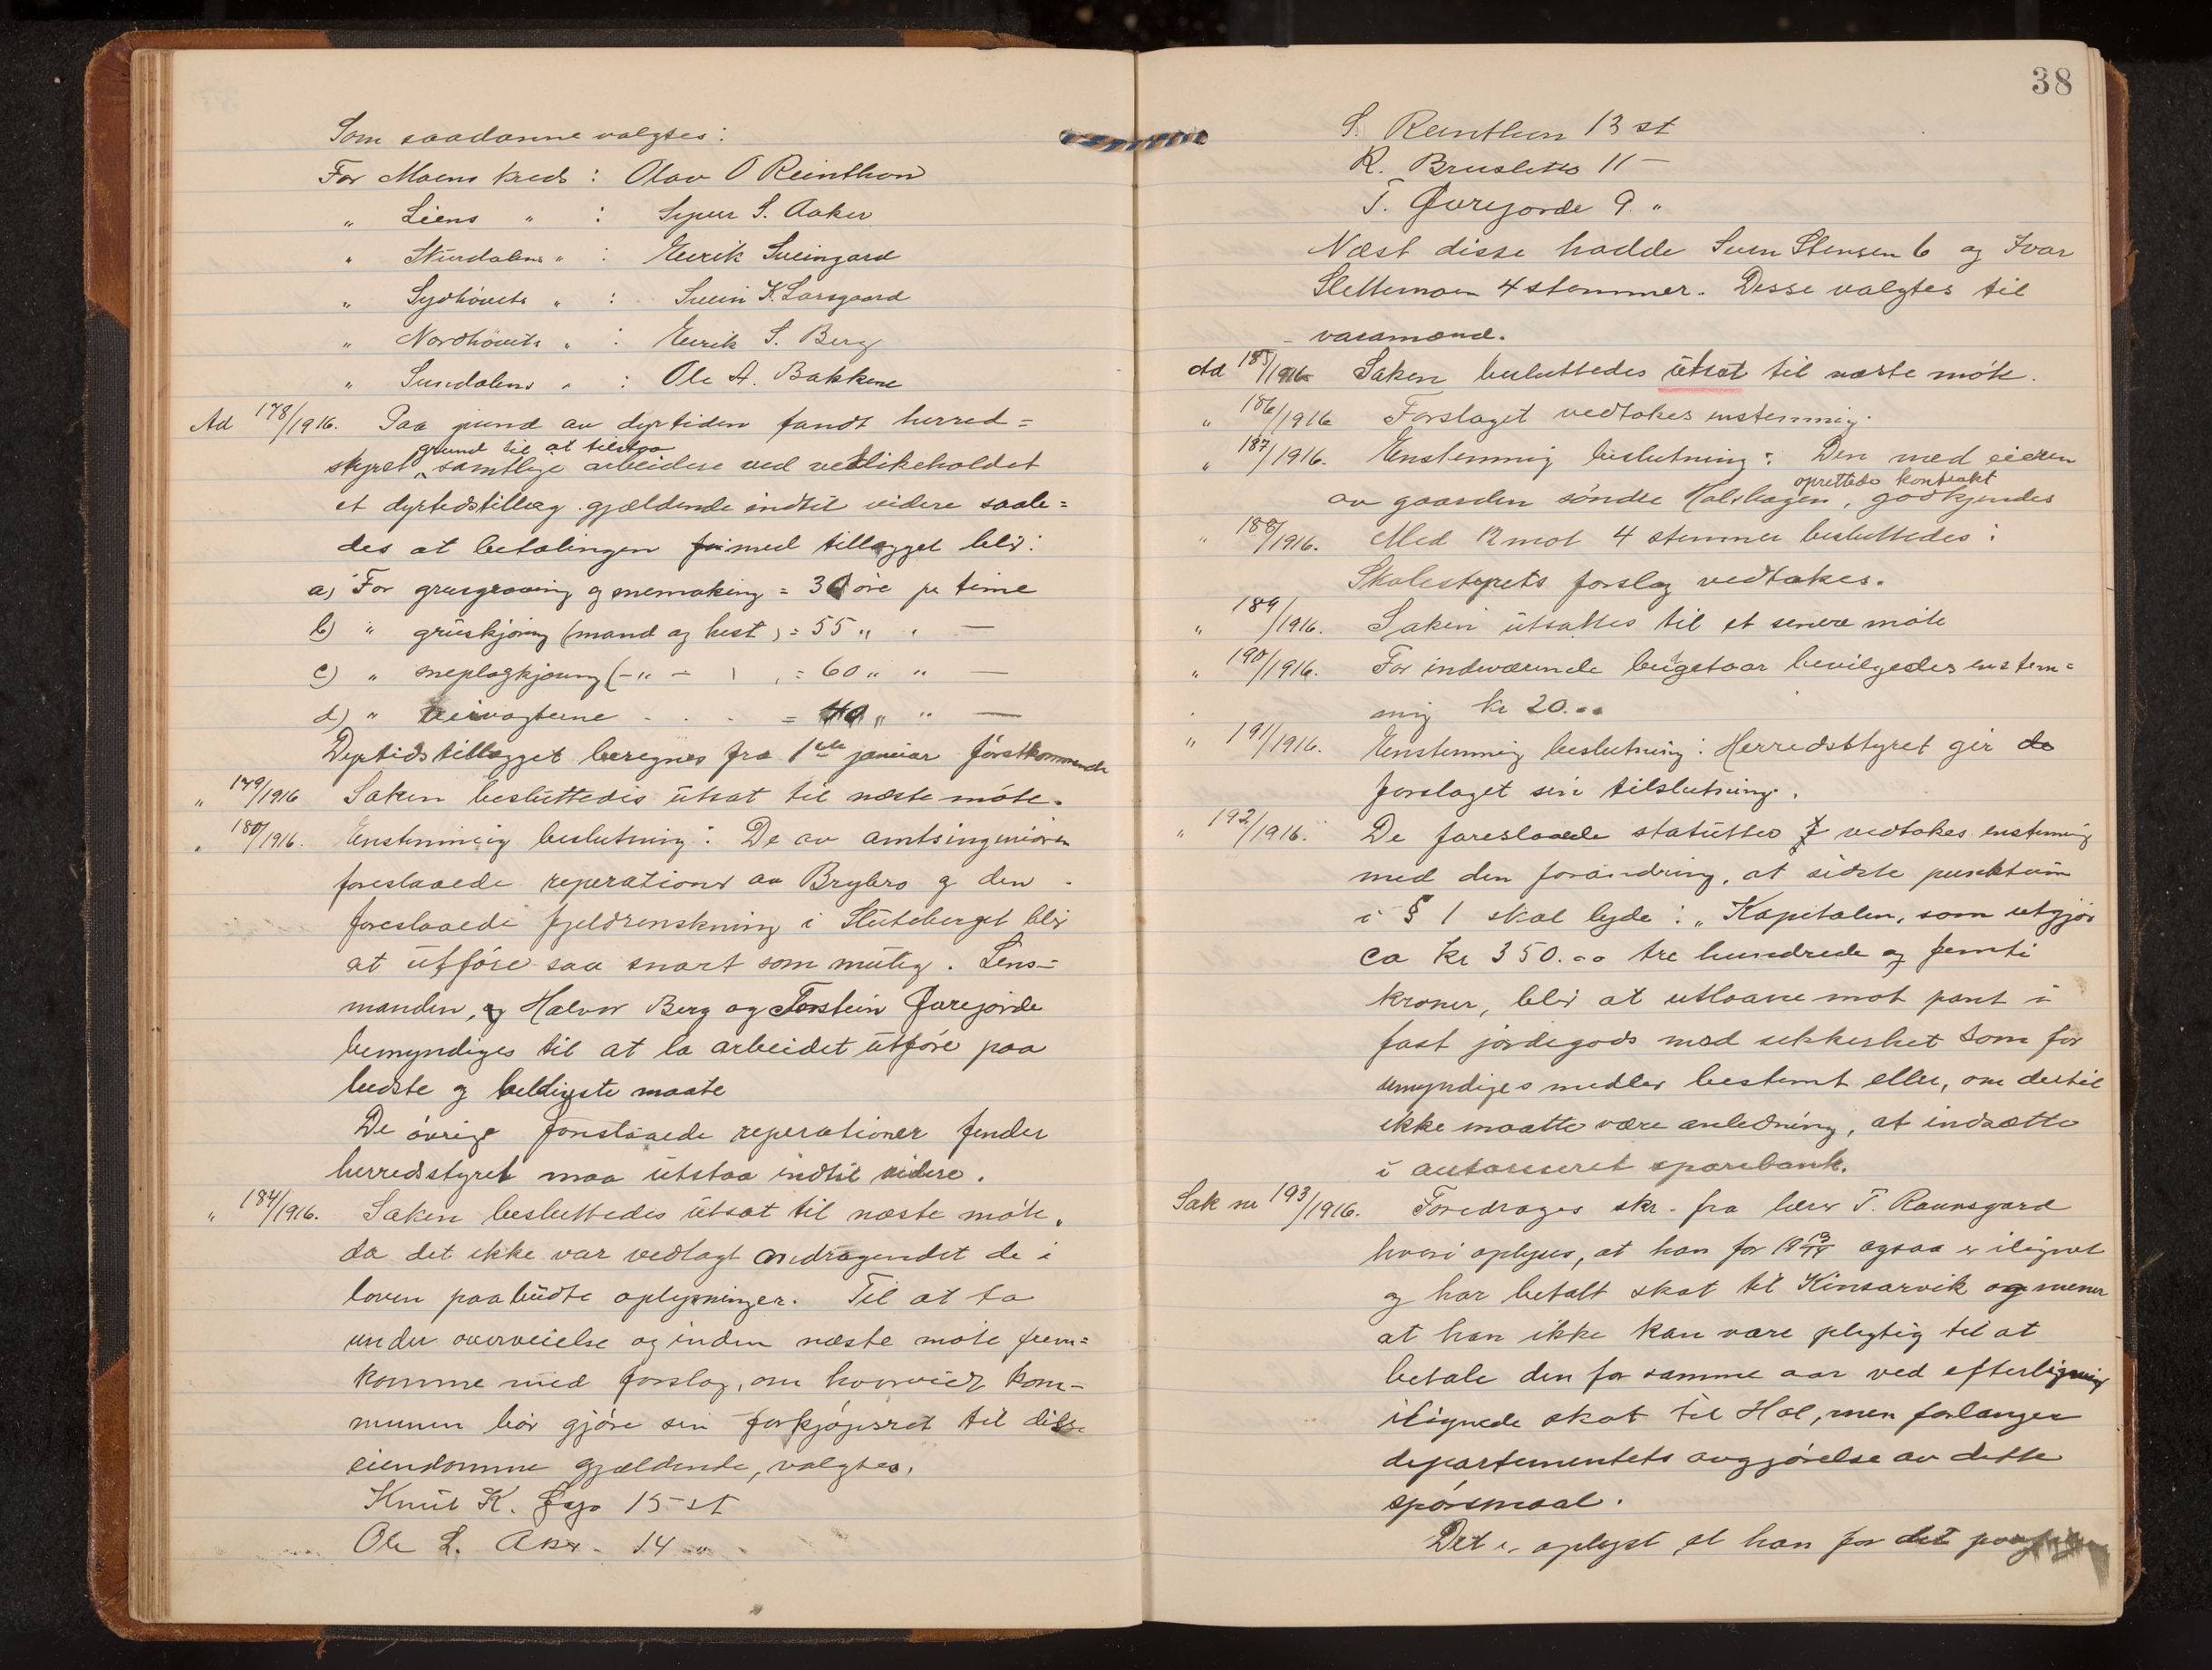 Som saadanne valgtes:
For Moens kreds : Olav O Reinthon
„ Liens „ : Sjur S. Aaker
„ Sturdalens „ : Eirik Sveingard
„ Sydhövets „ : Svein K. Larsgaard
„ Nordhövets „ : Eirik S. Berg
„ Sundalens „ : Ole A. Bakkene
Ad 178/1916. Paa grund av dyrtiden fandt herred=
grund til at tilstaa
styret samtlige arbeidere ved vedlikeholdet
et dyrtidstillæg gjældende indtil videre saale=
des at betalingen med tillægget blir:
a) For grusgraving og snemaking = 30 öre pr time
b) „ gruskjöring (mand og hest) = 55 „ „ —
c) „ sneplogkjöring (-„- ) = 60 „ „ —
d) „ veivogterne . . . = 40 „ „ —
Dyrtidstillægget beregnes fra 1ste januar förstkommende
„ 179/1916 Saken besluttedes utsat til næste möte.
„ 180/1916. Enstemmig beslutning: De av amtsingeniören
foreslaaede reperationer av Brybro og den
foreslaaede fjeldrenskning i Sluteberget blir
at utföre saa snart som mulig. Lens-
manden, og Halvor Berg og Torstein Övrejorde
bemyndiges til at la arbeidet utföre paa
bedste og heldigste maate
De övrige foreslaaede reperationer finder
herredsstyret maa utstaa indtil videre.
„ 184/1916. Saken besluttedes utsat til næste möte,
da det ikke var vedlagt andragendet de i
loven paabudte oplysninger. Til at ta
under overveielse og inden næste möte frem=
komme med forslag, om hvorvidt kom-
munen bör gjöre sin forkjöpsret til disse
eiendomme gjældende, valgtes,
Knut K. 15 st
Ole L. Aker 14 „
38
S. Reinthon 13 st
K. Brusletto 11 —
T. Övrejorde 9 „
Næst disse hadde Sven Stensen 6 og Ivar
Slettemoen 4 stemmer. Disse valgtes til
varamænd.
Ad 185/1916 Saken besluttedes utsat til næste möte.
„ 186/1916 Forslaget vedtokes enstemmig.
„ 187/1916. Enstemmig beslutning: Den med eieren
oprettede kontrakt
av gaarden söndre Holshagen, godkjendes
„ 188/1916. Med 12 mot 4 stemmer besluttedes:
Skolestyrets forslag vedtakes.
„ 189/1916. Saken utsattes til et senere möte
„ 190/1916. For indeværende budgetaar bevilgedes enstem=
mig kr 20.00
„ 191/1916. Enstemmig beslutning: Herredsstyret gir de
forslaget sin tilslutning.
„ 192/1916. De foreslaaede statutter vedtokes enstemmig
med den forandring, at sidste punktum
i § 1 skal lyde: „Kapitalen, som utgjör
ca kr 350.00 tre hundrede og femti
kroner, blir at utlaane mot pant i
fast jordegods med sikkerhet som for
umyndiges midler bestemt eller, om dertil
ikke maatte være anledning, at indsætte
i autoriseret sparebank.
Sak nr 193/1916. Foredrages skr. fra lærer T. Raunsgard
hvori oplyses, at han for 1913/14 ogsaa er ilignet
og har betalt skat til Kinsarvik og mener
at han ikke kan være pligtig til at
betale den for samme aar ved efterligning
ilignede skat til Hol, men forlanger
departementets avgjörelse av dette
spörsmaal.
Det er oplyst at han for det